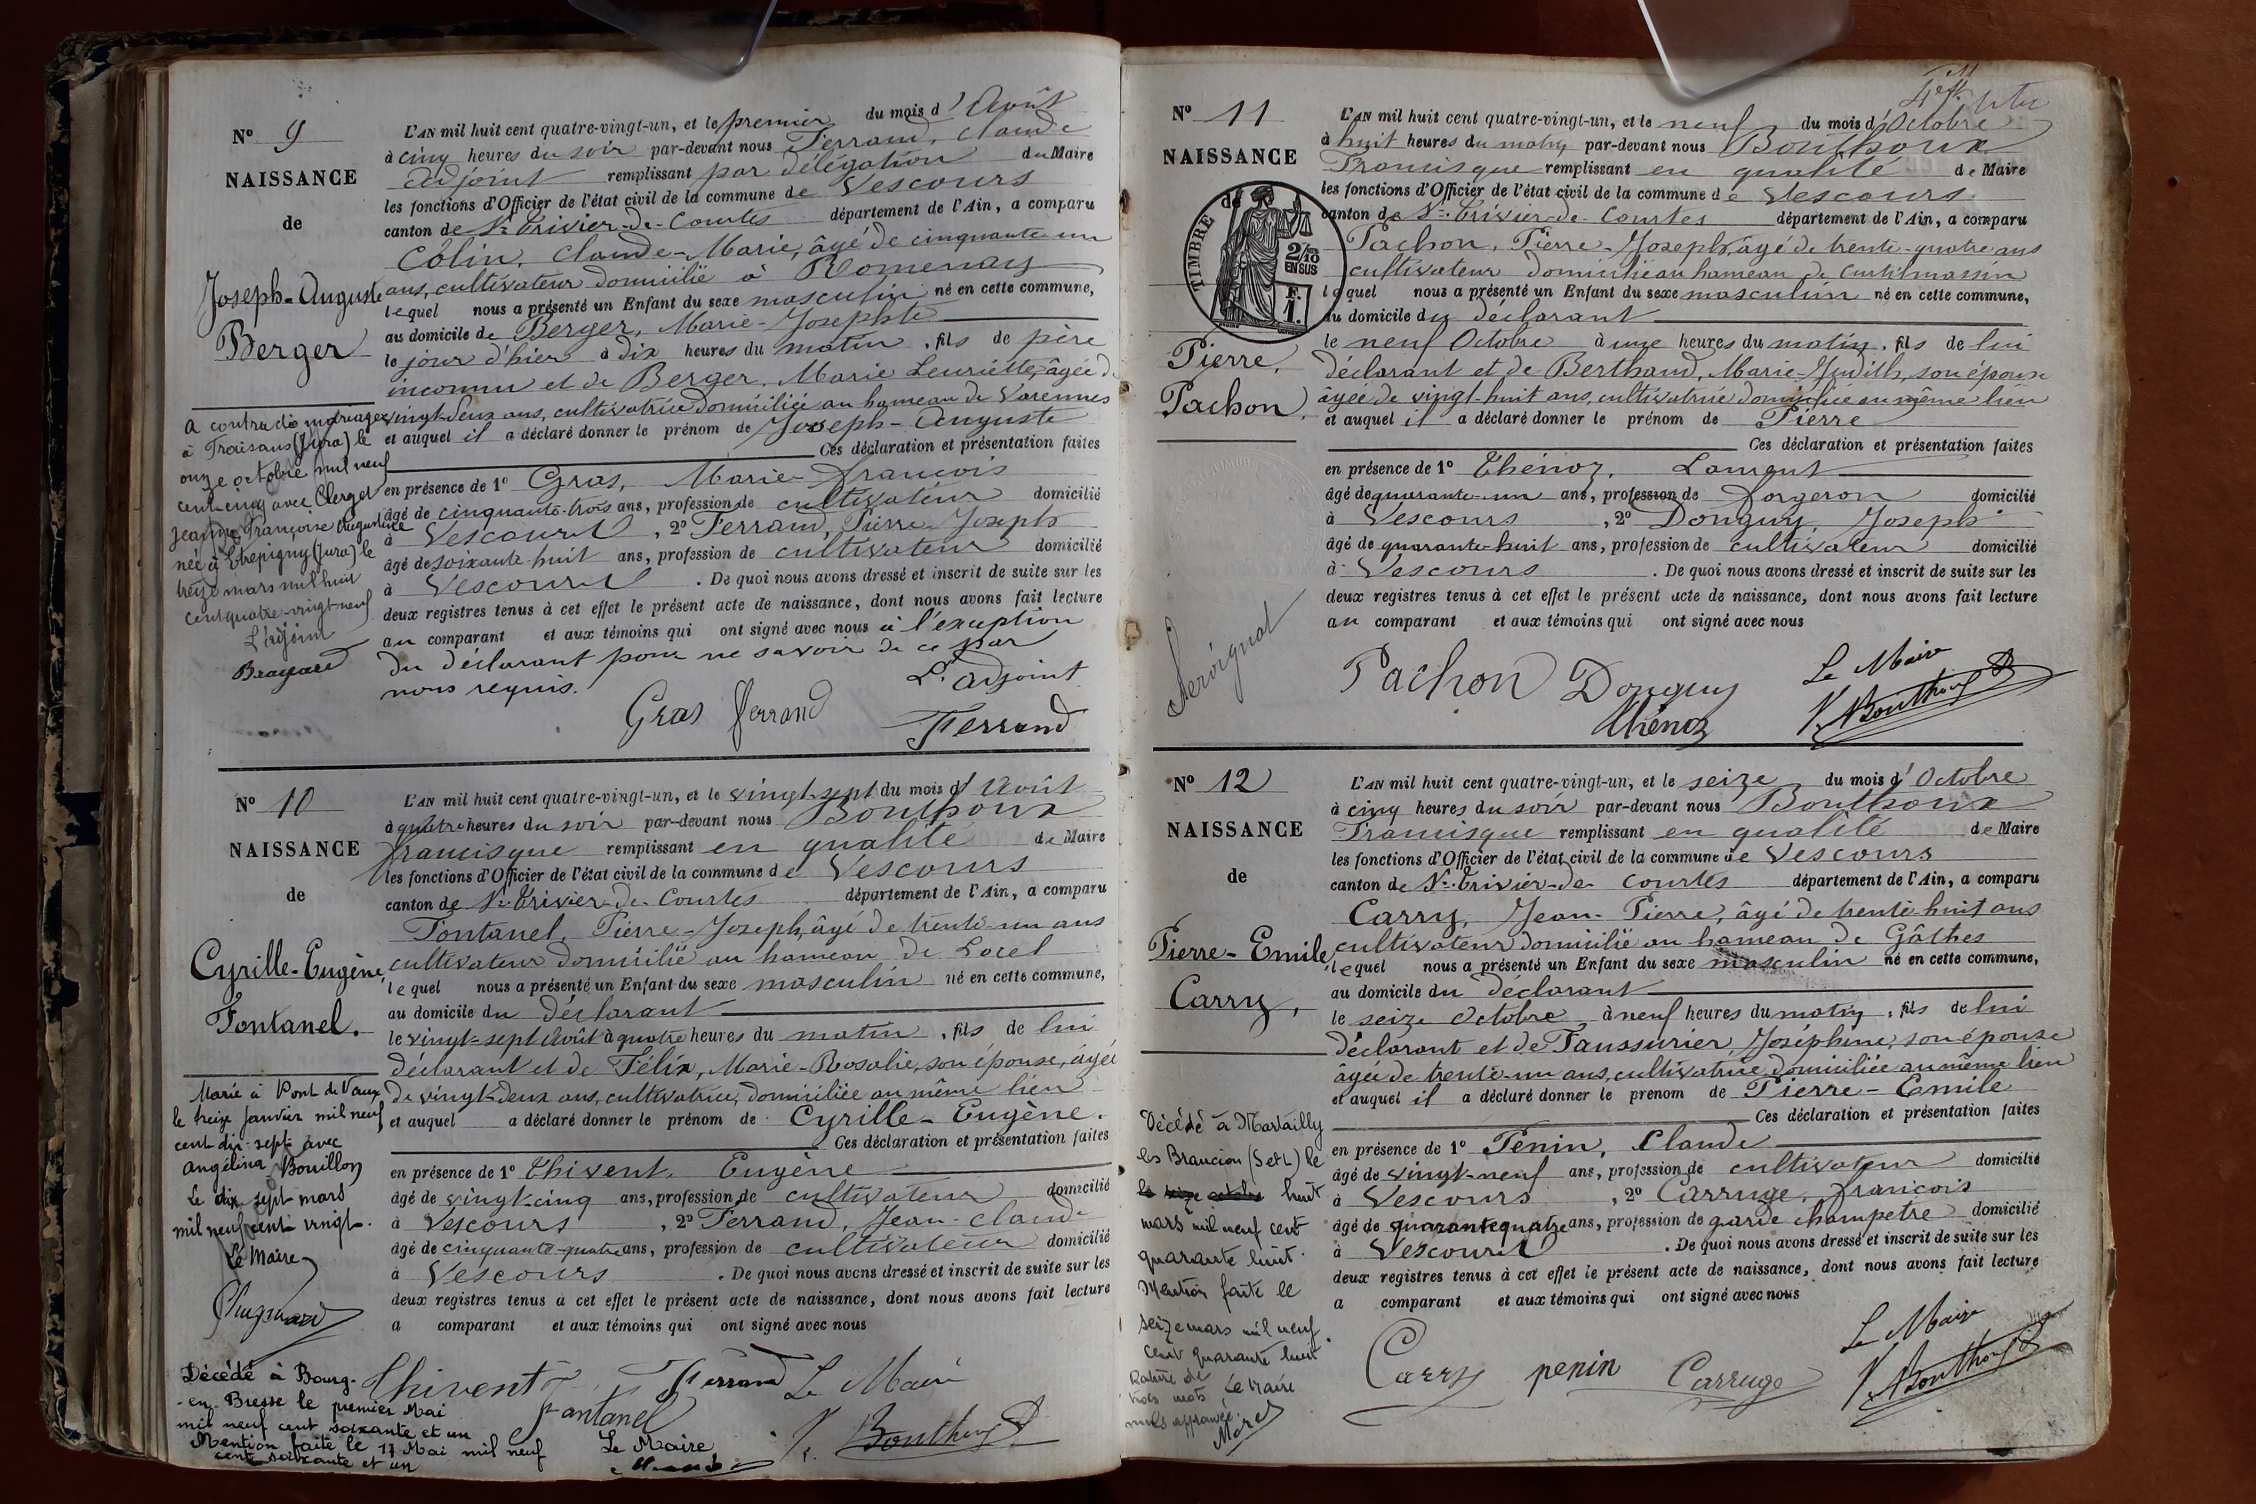 N° 9
NAISSANCE
de
Joseph-Auguste
Berger
a contracté mariage
à Fraisans (Jura) le
onze octobre mil neuf
cent cinq avec Clerget
Jeanne Françoise Augustine
née à Etrepigny (Jura) le
treize mars mil huit
cent quatre-vingt neuf
L'adjoint
L'AN mil huit cent quatre-vingt-un, et le premier du mois d'Août
à cinq heures du soir par-devant nous Ferrand, Claude
adjoint remplissant par délégation du Maire
les fonctions d'Officier de l'état civil de la commune de Vescours
canton de St Trivier-de-Courtes département de l'Ain, a comparu
Colin, Claude-Marie, âgé de cinquante-un
ans, cultivateur domicilié à Romenay
lequel nous a présenté un Enfant du sexe masculin né en cette commune,
au domicile de Berger, Marie-Josephte
le jour d'hier à dix heures du matin, fils de père
inconnu et de Berger, Marie Leuriette, âgée de
vingt-deux ans, cultivatrice domiciliée au hameau de Varennes
et auquel il a déclaré donner le prénom de Joseph-Auguste
Ces déclaration et présentation faites
en présence de 1° Gras, Marie-François
âgé de cinquante-trois ans, profession de cultivateur domicilié
à Vescours, 2° Ferrand, Pierre-Joseph
âgé de soixante-huit ans, profession de cultivateur domicilié
à Vescours. De quoi nous avons dressé et inscrit de suite sur les
deux registres tenus à cet effet le présent acte de naissance, dont nous avons fait lecture
au comparant et aux témoins qui ont signé avec nous à l'exception
du déclarant pour ne savoir de ce par
nous requis.
L'adjoint
Gras Ferrand Ferrand
N° 10
NAISSANCE
de
Cyrille-Eugène,
Fontanel.
Marié à Pont de Vaux
le treize Janvier mil neuf
cent dix-sept avec
Angélina Bouillon
Le dix sept mars
mil neuf cent vingt.
Le Maire
Décédé à Bourg-
-en-Bresse le premier Mai
mil neuf cent soixante et un
Mention faite le 17 Mai mil neuf
cent soixante et un
Le Maire
L'AN mil huit cent quatre-vingt-un, et le vingt-sept du mois d'Août
à quatre heures du soir par-devant nous Bouthoux
francisque remplissant en qualité de Maire
les fonctions d'Officier de l'état civil de la commune de Vescours
canton de St Trivier-de-Courtes département de l'Ain, a comparu
Fontanel, Pierre-Joseph, âgé de trente-un ans
cultivateur domicilié au hameau de Locel
lequel nous a présenté un Enfant du sexe masculin né en cette commune,
au domicile du déclarant
le vingt-sept Août à quatre heures du matin, fils de lui
déclarant et de Félix, Marie-Rosalie, son épouse, âgée
de vingt-deux ans, cultivatrice, domiciliée au même lieu
et auquel a déclaré donner le prénom de Cyrille-Eugène.
Ces déclaration et présentation faites
en présence de 1° Thivent, Eugène
âgé de vingt-cinq ans, profession de cultivateur domicilié
à Vescours, 2° Ferrand, Jean-Claude
âgé de cinquante-quatre ans, profession de cultivateur domicilié
à Vescours. De quoi nous avons dressé et inscrit de suite sur les
deux registres tenus à cet effet le présent acte de naissance, dont nous avons fait lecture
a comparant et aux témoins qui ont signé avec nous
Thivent Ferrand Le Maire
Fontanel Bouthoux
N° 11
NAISSANCE
de
TIMBRE
2/10
EN SUS
F.
1.
Pierre,
Pachon,
Servignat
L'AN mil huit cent quatre-vingt-un, et le neuf du mois d'Octobre
à huit heures du matin par-devant nous Bouthoux
Francisque remplissant en qualité de Maire
les fonctions d'Officier de l'état civil de la commune de Vescours
canton de St Trivier-de-Courtes département de l'Ain, a comparu
Pachon, Pierre-Joseph, âgé de trente-quatre ans
cultivateur domicilié au hameau de Curtilmassin
lequel nous a présenté un Enfant du sexe masculin né en cette commune,
au domicile du déclarant
le neuf Octobre à une heures du matin, fils de lui
déclarant et de Berthaud, Marie-Judith, son épouse
âgée de vingt-huit ans, cultivatrice domiciliée au même lieu
et auquel il a déclaré donner le prénom de Pierre
Ces déclaration et présentation faites
en présence de 1° Thénoz, Laurent
âgé de quarante-un ans, profession de forgeron domicilié
à Vescours, 2° Donguy, Joseph
âgé de quarante-huit ans, profession de cultivateur domicilié
à Vescours. De quoi nous avons dressé et inscrit de suite sur les
deux registres tenus à cet effet le présent acte de naissance, dont nous avons fait lecture
au comparant et aux témoins qui ont signé avec nous
Le Maire
Pachon Donguy
Thénoz Bouthoux
N° 12
NAISSANCE
de
Pierre-Emile,
Carry,
Décédé à Martailly
les Brancion (S et L) le
le seize octobre huit
mars mil neuf cent
quarante huit.
Mention faite le
seize mars mil neuf
cent quarante huit
Rature de
trois mots Le Maire
nuls approuvée.
L'AN mil huit cent quatre-vingt-un, et le seize du mois d'Octobre
à cinq heures du soir par-devant nous Bouthoux
Francisque remplissant en qualité de Maire
les fonctions d'Officier de l'état civil de la commune de Vescours
canton de St Trivier-de-Courtes département de l'Ain, a comparu
Carry, Jean-Pierre, âgé de trente-huit ans
cultivateur domicilié au hameau de Gâthes
lequel nous a présenté un Enfant du sexe masculin né en cette commune,
au domicile du déclarant
le seize Octobre à neuf heures du matin, fils de lui
déclarant et de Faussurier Joséphine, son épouse
âgée de trente-un ans, cultivatrice domiciliée au même lieu
et auquel il a déclaré donner le prénom de Pierre-Emile
Ces déclaration et présentation faites
en présence de 1° Penin, Claude
âgé de vingt-neuf ans, profession de cultivateur domicilié
à Vescours, 2° Carruge, françois
âgé de quarante quatre ans, profession de garde champetre domicilié
à Vescours. De quoi nous avons dressé et inscrit de suite sur les
deux registres tenus à cet effet le présent acte de naissance, dont nous avons fait lecture
a comparant et aux témoins qui ont signé avec nous
Le Maire
Carry penin Carruge Bouthoux